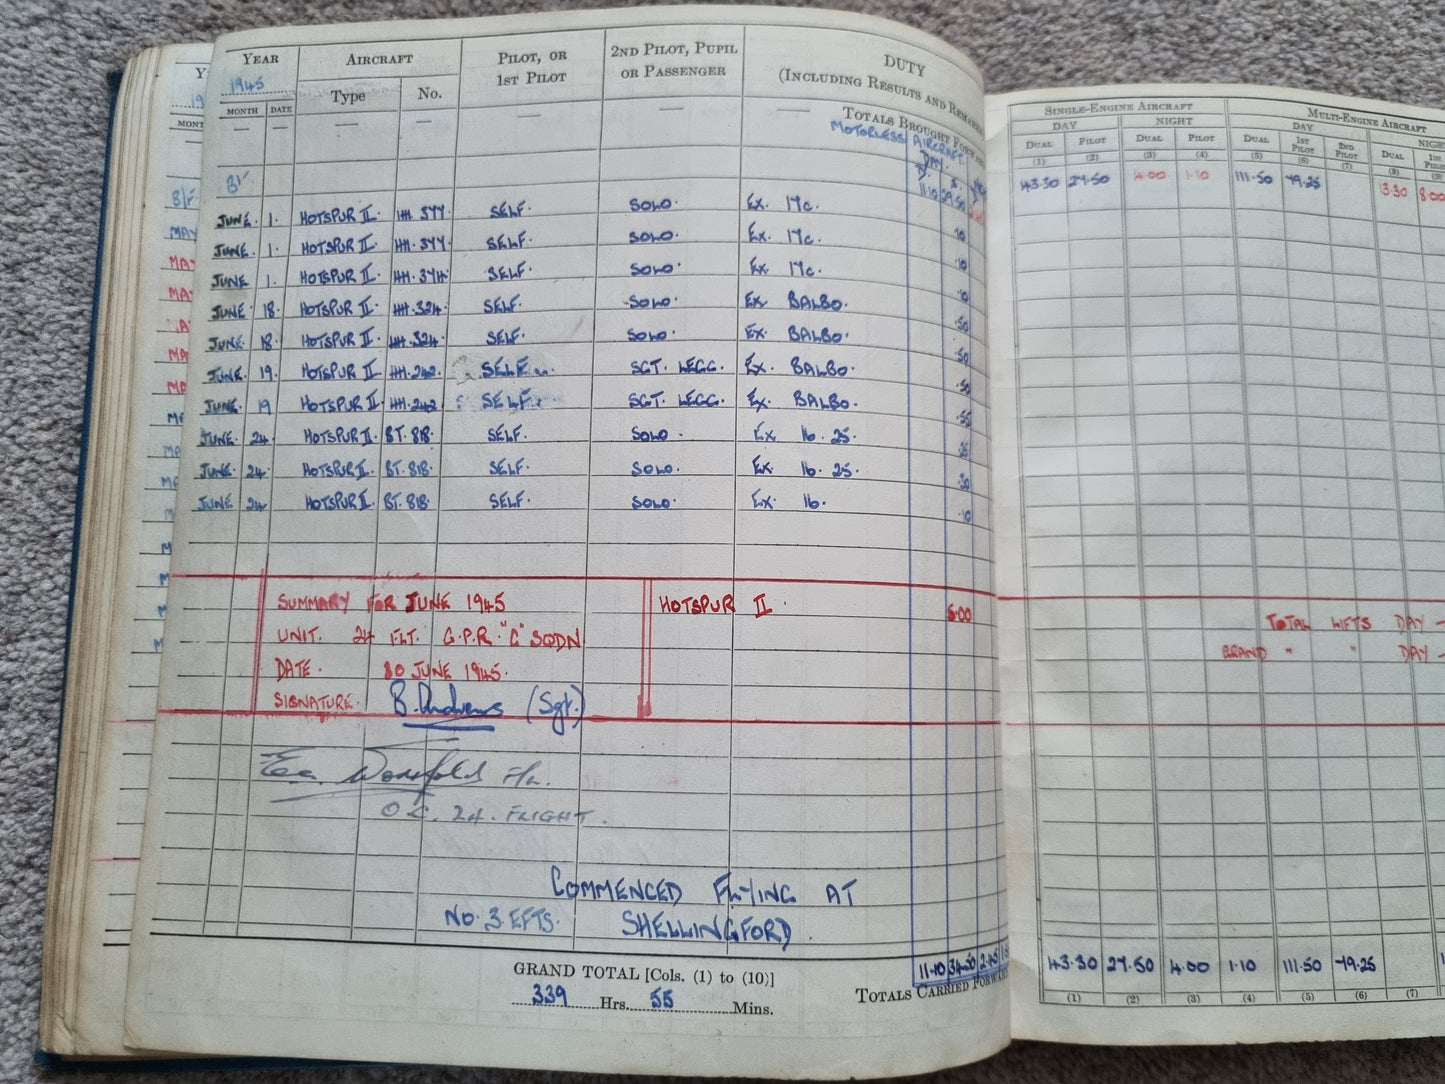 YEAR AIRCRAFT PILOT, OR 1ST PILOT 2ND PILOT, PUPIL OR PASSENGER DUTY (INCLUDING RESULTS AND REMARKS)
1945 Type No.
MONTH DATE
TOTALS BROUGHT FORWARD
MOTORLESS AIRCRAFT
DAY.
B/F. 11.10 29.50
JUNE. 1. HOTSPUR II. HH. 377. SELF. SOLO. Ex. 17c. .10
JUNE. 1. HOTSPUR II. HH. 377. SELF. SOLO. Ex. 17c. .10
JUNE 1. HOTSPUR II. HH. 374. SELF. SOLO. Ex. 17c. .10
JUNE 18. HOTSPUR II. HH. 324. SELF. SOLO. Ex. BALBO. .50
JUNE. 18. HOTSPUR II. HH. 324. SELF. SOLO. Ex. BALBO. .50
JUNE 19. HOTSPUR II. HH. 242. SELF. SGT. LEGG. Ex. BALBO. .50
JUNE 19 HOTSPUR II. HH. 242 SELF. SGT. LEGG. Ex. BALBO. .55
JUNE. 24. HOTSPUR II. BT. 818. SELF. SOLO. Ex 16. 25. .25
JUNE. 24. HOTSPUR II. BT. 818. SELF. SOLO. Ex 16. 25. .30
JUNE 24. HOTSPUR II. BT. 818. SELF. SOLO. Ex. 16. .10
SUMMARY FOR JUNE 1945 HOTSPUR II. 5.00
UNIT. 24 FLT. G.P.R. "G" SQDN.
DATE. 30 JUNE 1945.
SIGNATURE. B. Andrews (Sgt.)
O.C. 24. FLIGHT.
COMMENCED FLYING AT
No. 3 EFTS. SHELLINGFORD.
GRAND TOTAL [Cols. (1) to (10)]
339 Hrs. 55 Mins.
TOTALS CARRIED FORWARD 11.10 34.50 2.45
SINGLE-ENGINE AIRCRAFT MULTI-ENGINE AIRCRAFT
DAY NIGHT DAY
DUAL PILOT DUAL PILOT DUAL 1ST PILOT 2ND PILOT DUAL
(1) (2) (3) (4) (5) (6) (7) (8)
43.30 29.50 4.00 1.10 111.50 79.25 3.30 8.00
TOTAL LIFTS DAY -
GRAND " " DAY -
43.30 29.50 4.00 1.10 111.50 79.25
(1) (2) (3) (4) (5) (6) (7)